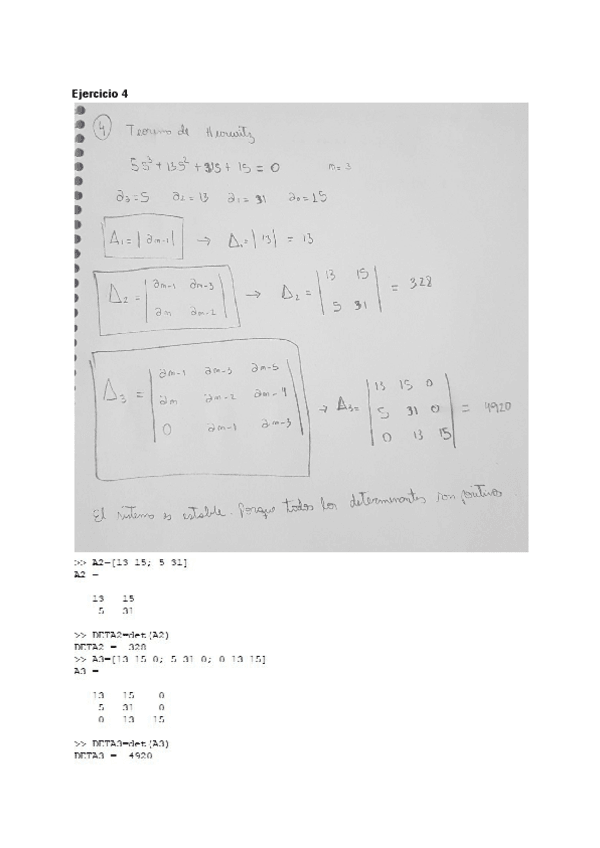 Ejercicio 4
4 Teorema de Hurwitz
5S³ + 13S² + 31S + 15 = 0 m = 3
a₃ = 5 a₂ = 13 a₁ = 31 a₀ = 15
Δ₁ = |am-1| → Δ₁ = |13| = 13
Δ₂ = | am-1 am-3 | → Δ₂ = | 13 15 | = 328
| am am-2 | | 5 31 |
Δ₃ = | am-1 am-3 am-5 | → Δ₃ = | 13 15 0 | = 4920
| am am-2 am-4 | | 5 31 0 |
| 0 am-1 am-3 | | 0 13 15 |
El sistema es estable. Porque todos los determinantes son positivos
>> A2=[13 15; 5 31]
A2 =
13 15
5 31
>> DETA2=det(A2)
DETA2 = 328
>> A3=[13 15 0; 5 31 0; 0 13 15]
A3 =
13 15 0
5 31 0
0 13 15
>> DETA3=det(A3)
DETA3 = 4920